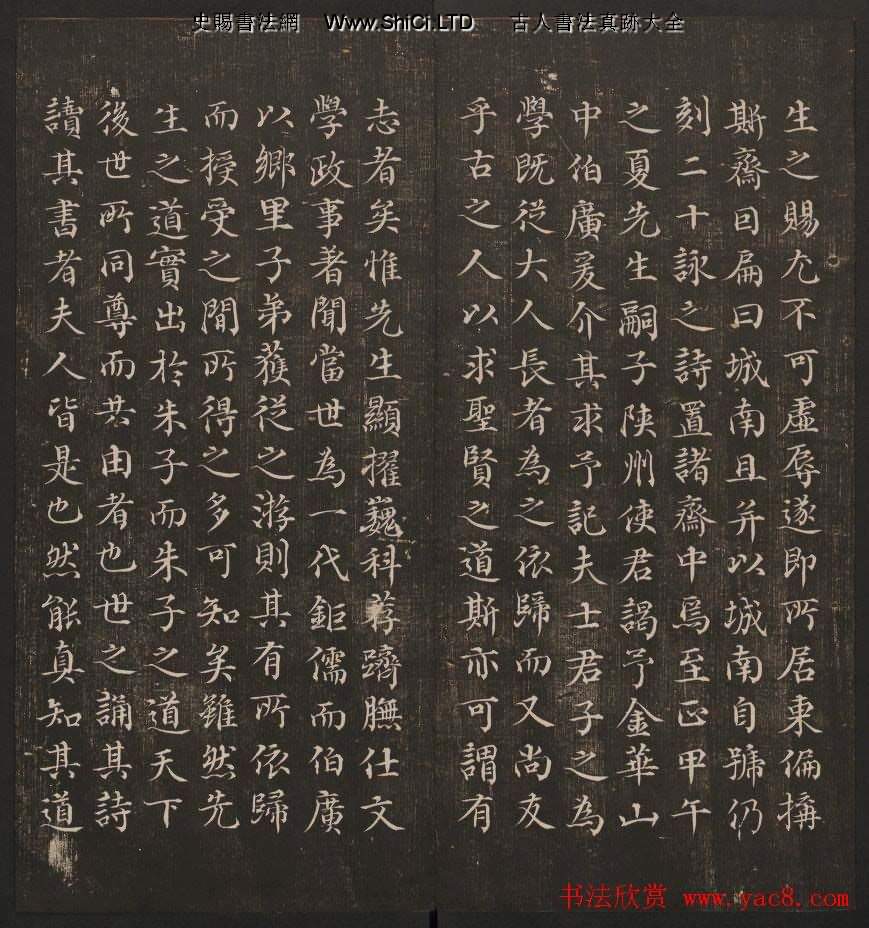 史賜書法網 Www.ShiCi.LTD 古人書法真跡大全
生之賜尤不可虛辱遂即所居東偏搆
斯齋回扁曰城南且并以城南自號仍
刻二十詠之詩置諸齋中焉至正甲午
之夏先生嗣子陝州使君謁予金華山
中伯廣爰介其求予記夫士君子之為
學既從大人長者為之依歸而又尚友
乎古之人以求聖賢之道斯亦可謂有
志者矣惟先生顯擢巍科荐躋膴仕文
學政事著聞當世為一代鉅儒而伯廣
以鄉里子弟獲從之游則其有所依歸
而授受之間所得之多可知矣雖然先
生之道實出於朱子而朱子之道天下
後世所同尊而共由者也世之誦其詩
讀其書者夫人皆是也然能真知其道
书法欣赏 www.yac8.com